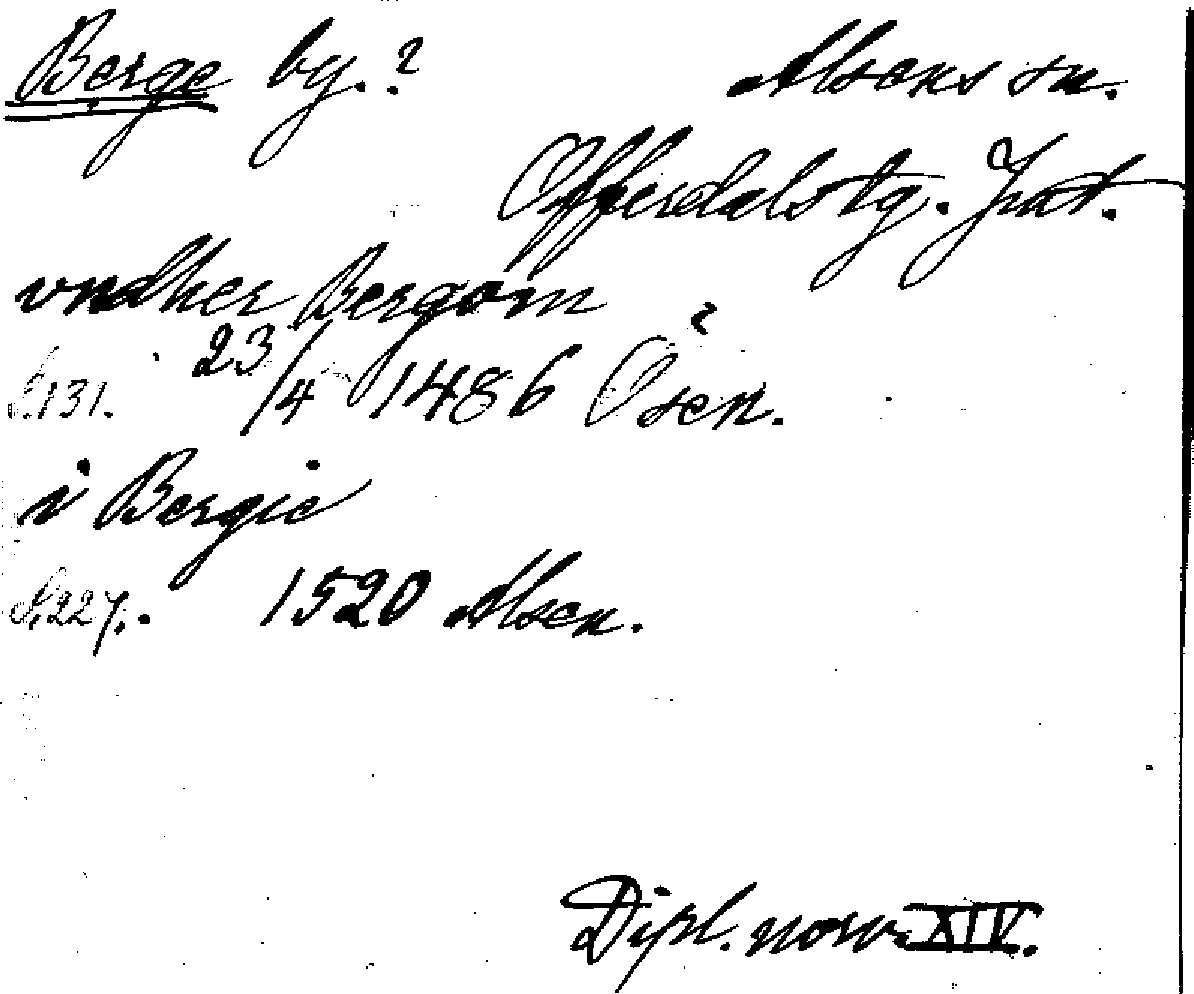 Berge by.? Alsens sn.
Offerdals tg. Jmt.
vndher Bergom
S.131. 23/4 1486 Osen. ?
i Bergie
S.227. 1520 Alsen.
Dipl. norv. XIV.